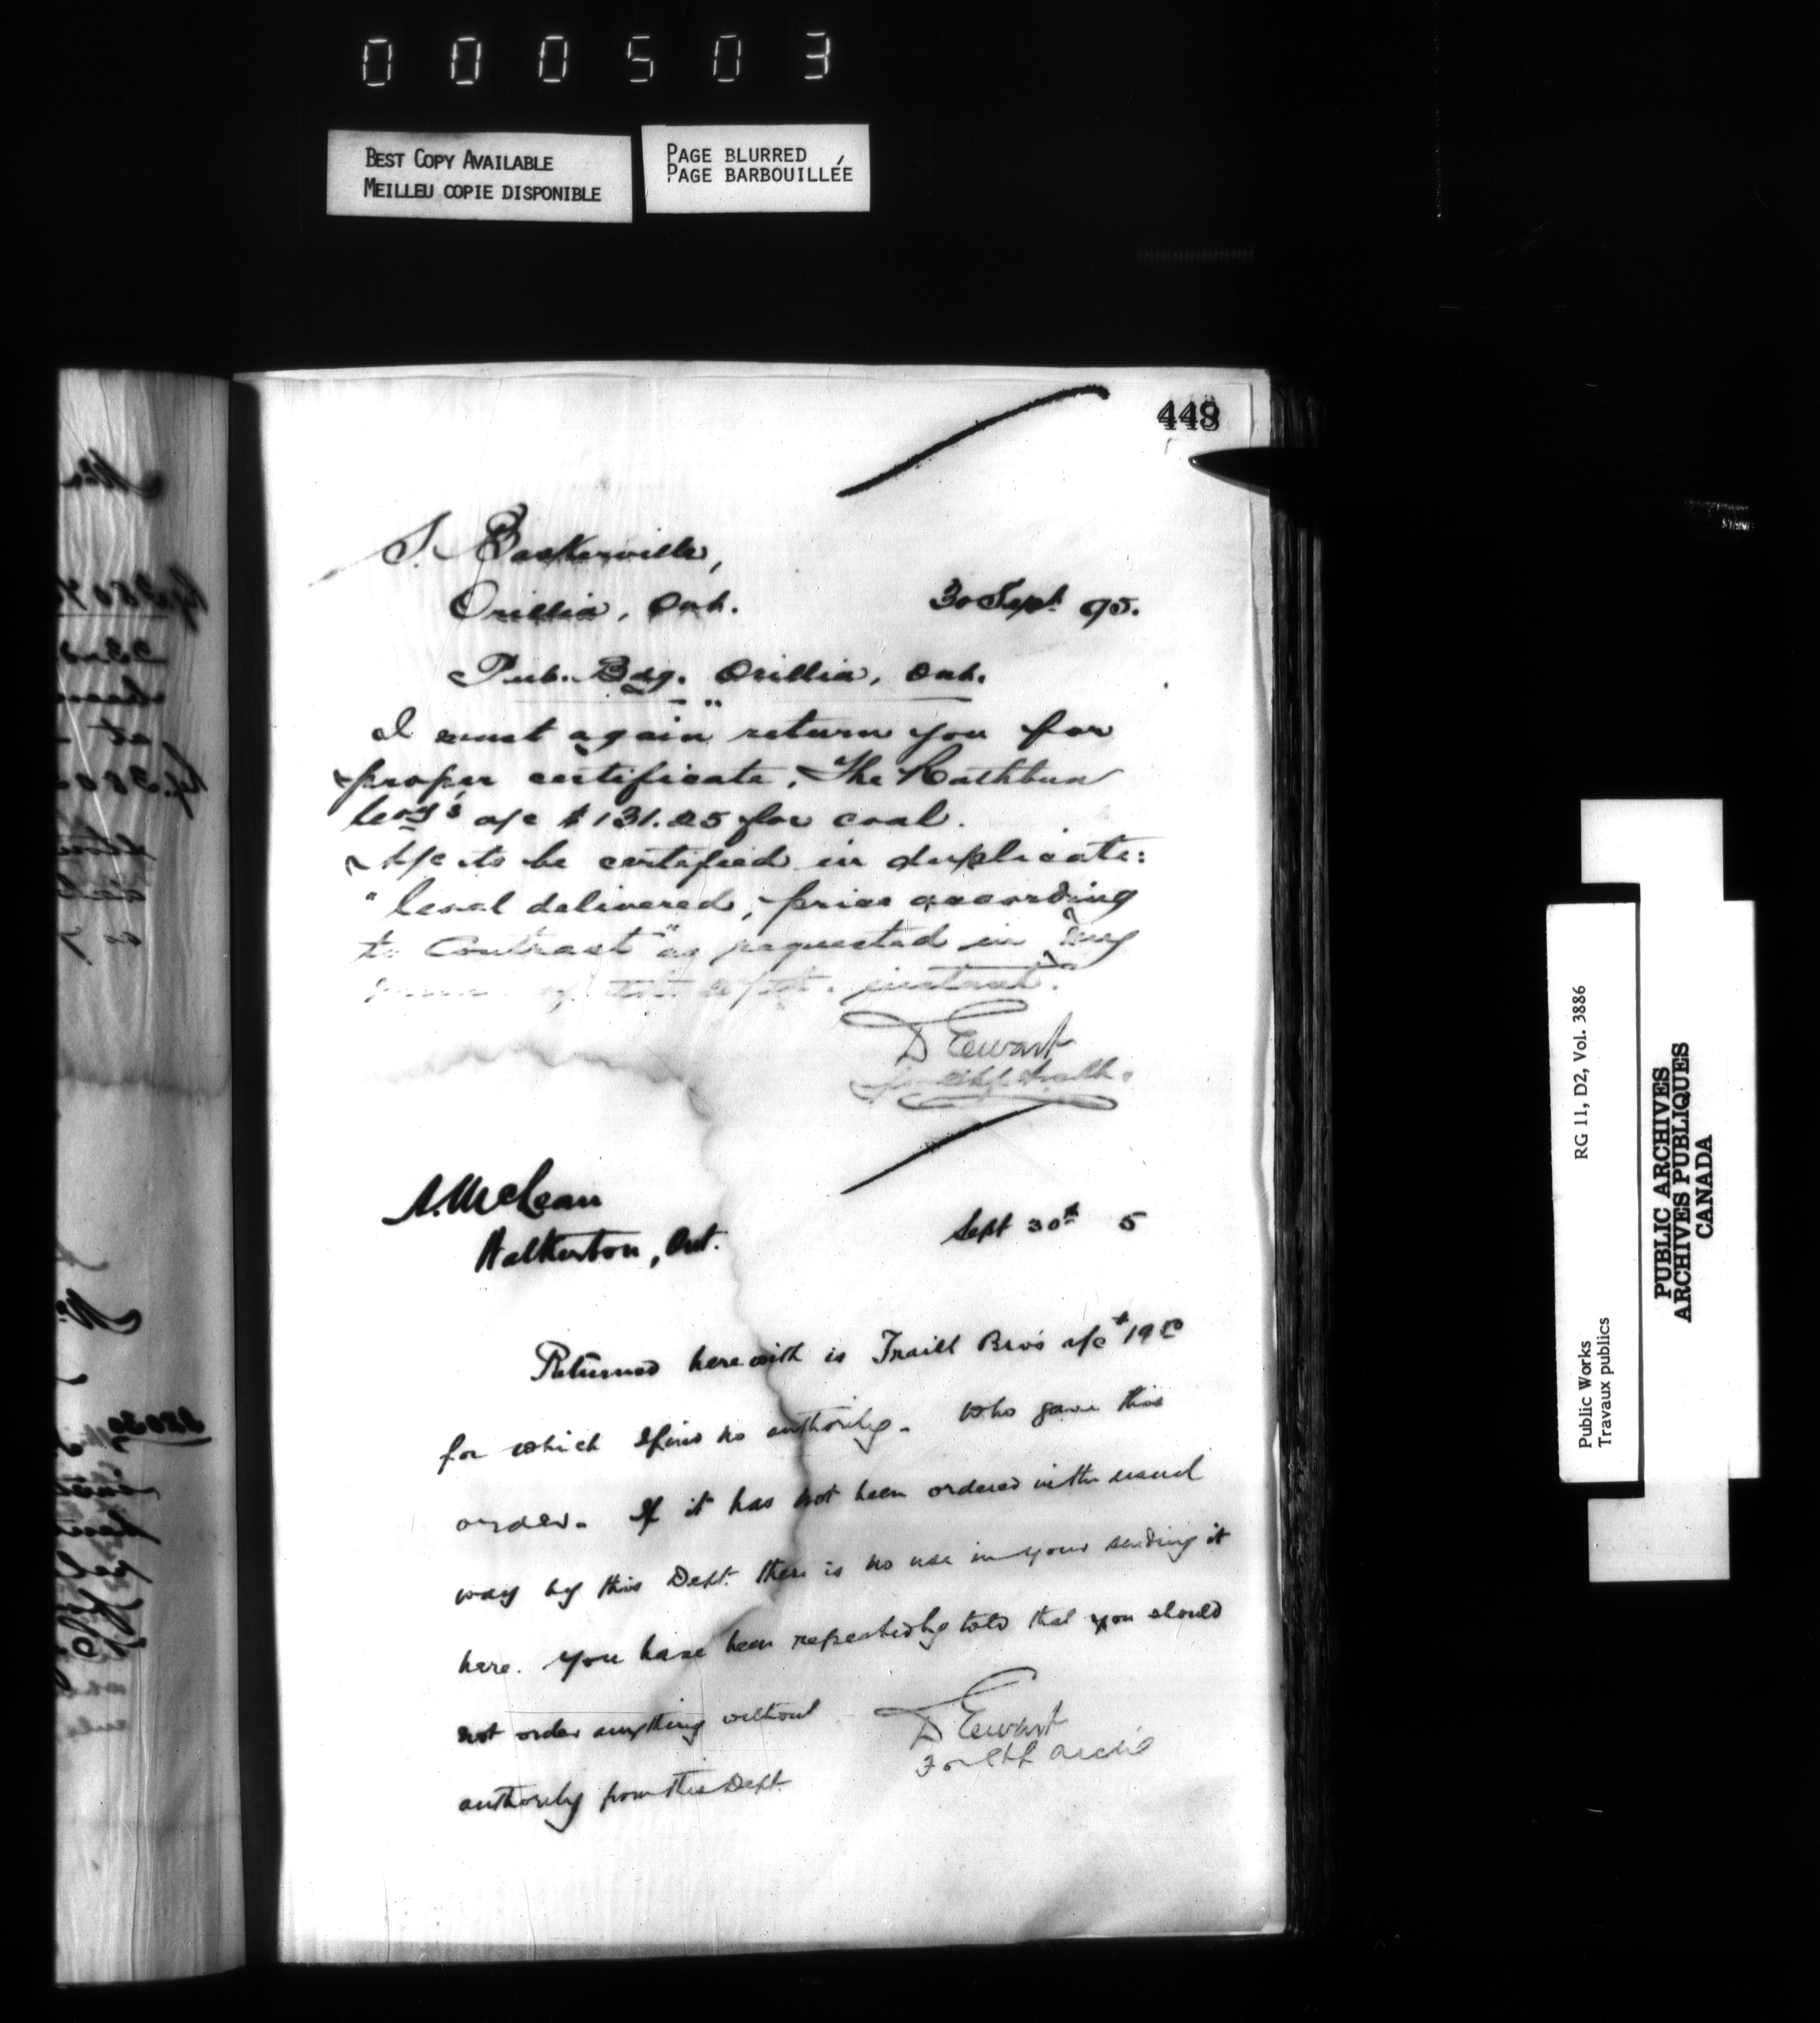 000503
BEST COPY AVAILABLE
MEILLEU COPIE DISPONIBLE
PAGE BLURRED
PAGE BARBOUILLÉE
449
S. Baskerville,
Orillia, Ont. 30 Sept. 95.
Pub. Bdg. Orillia, Ont.
I must again return you for
proper certificate, The Rathbun
Coy's a/c $131.25 for coal.
A/c to be certified in duplicate:
"Coal delivered, price according
to Contract" as requested in my
instant.
D Ewart
A. McLean
Walkerton, Ont.
Sept 30th 5
Returned herewith is Traill Bro's a/c $19 50
for which I find no authority. Who gave this
order. If it has not been ordered in the usual
way by this Dept. there is no use in your sending it
here. You have been repeatedly told that you should
not order anything without
authority from this Dept.
D Ewart
For Chf Archt
RG 11, D2, Vol. 3886
Public Works
Travaux publics
PUBLIC ARCHIVES
ARCHIVES PUBLIQUES
CANADA